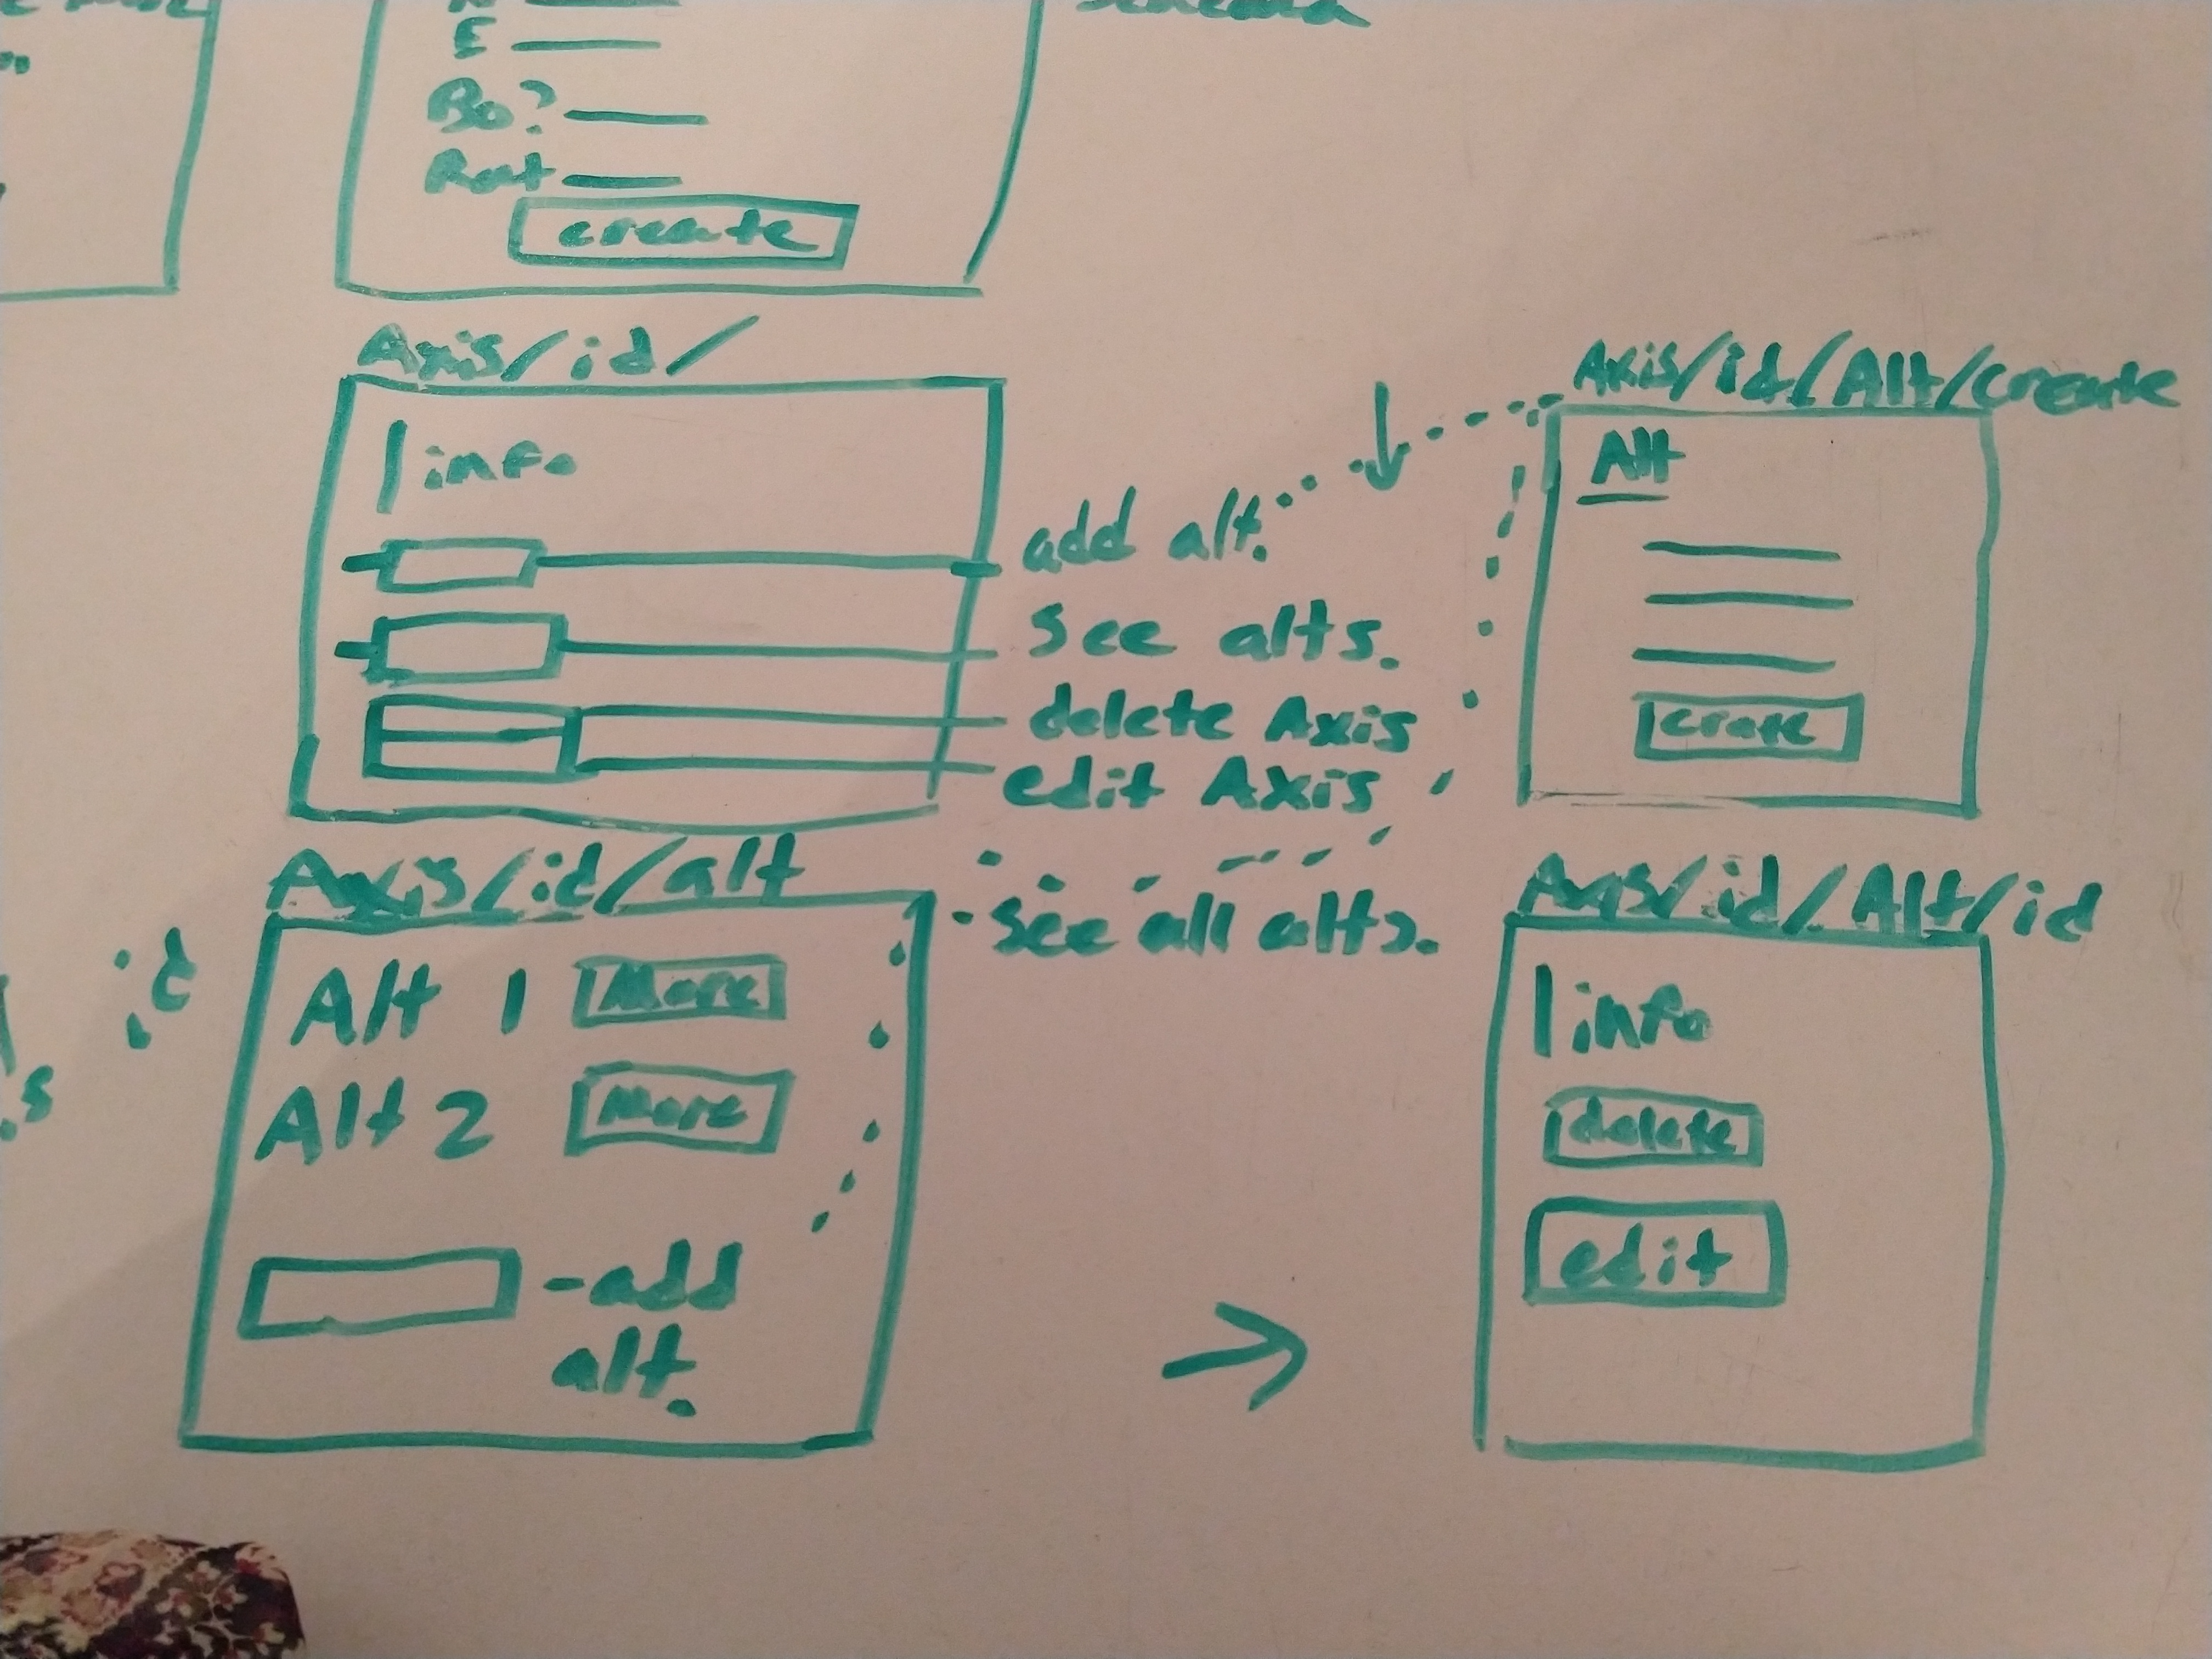 E
Bo?
Rat
create
Axis/id/
info
add alt.
see alts.
delete Axis
edit Axis
Axis/id/Alt/create
Alt
crate
Axis/id/alt
-see all alts.
Alt 1 More
Alt 2 More
-add
alt.
Axis/id/Alt/id
info
delete
edit